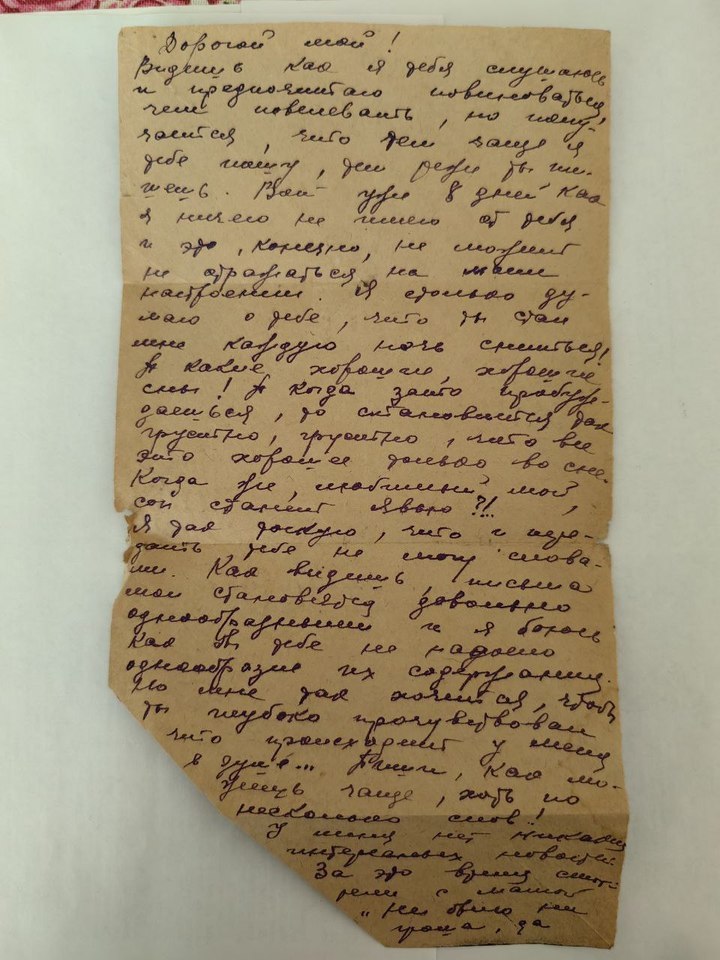 Дорогой мой!
Видишь как я тебя слушаюсь
и предпочитаю повиноваться,
чем повелевать, но полу-
чается, что чем чаще я
тебе пишу, тем реже ты пи-
шешь. Вот уже 8 дней как
я ничего не имею от тебя
и это, конечно, не может
не отражаться на моем
настроении. Я столько ду-
маю о тебе, что ты стал
мне каждую ночь сниться!
И какие хорошие, хорошие
сны! А когда зато пробуж-
даешься, то становится так
грустно, грустно, что все
это хорошее только во сне.
Когда же, любимый мой,
сон станет явью?!!
Я так тоскую, что и пере-
дать тебе не могу слова-
ми. Как видишь, письма
мои становятся довольно
однообразными и я боюсь
как бы тебе не надоело
однообразие их содержания.
Но мне так хочется, чтобы
ты глубоко прочувствовал
что происходит у меня
в душе... Пиши, как мо-
жешь чаще, хоть по
несколько слов!
У меня нет никаких
интересных новостей.
За это время смот-
рели с мамой
"Не было ни
гроша, да